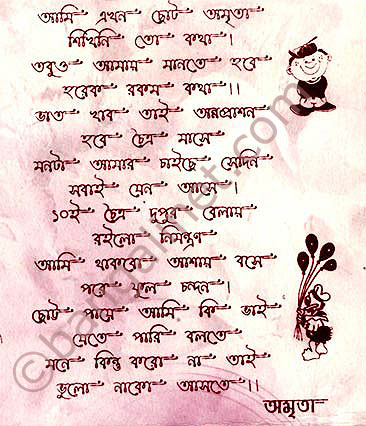 আমি এখন ছোট অমৃতা
শিখিনি তো কথা।
তবুও আমায় মানতে হবে
হরেক রকম কথা।।
ভাত খাব তাই অন্নপ্রাশন
হবে চৈত্র মাসে
মনটা আমার চাইছে সেদিন
সবাই যেন আসে।
১০ই চৈত্র দুপুর বেলায়
রইলো নিমন্ত্রণ
আমি থাকবো আশায় বসে
পরে ফুলে চন্দন।
ছোট পায়ে আমি কি ভাই
যেতে পারি বলতে
মনে কিন্তু করো না তাই
ভুলো নাকো আসতে।।
অমৃতা